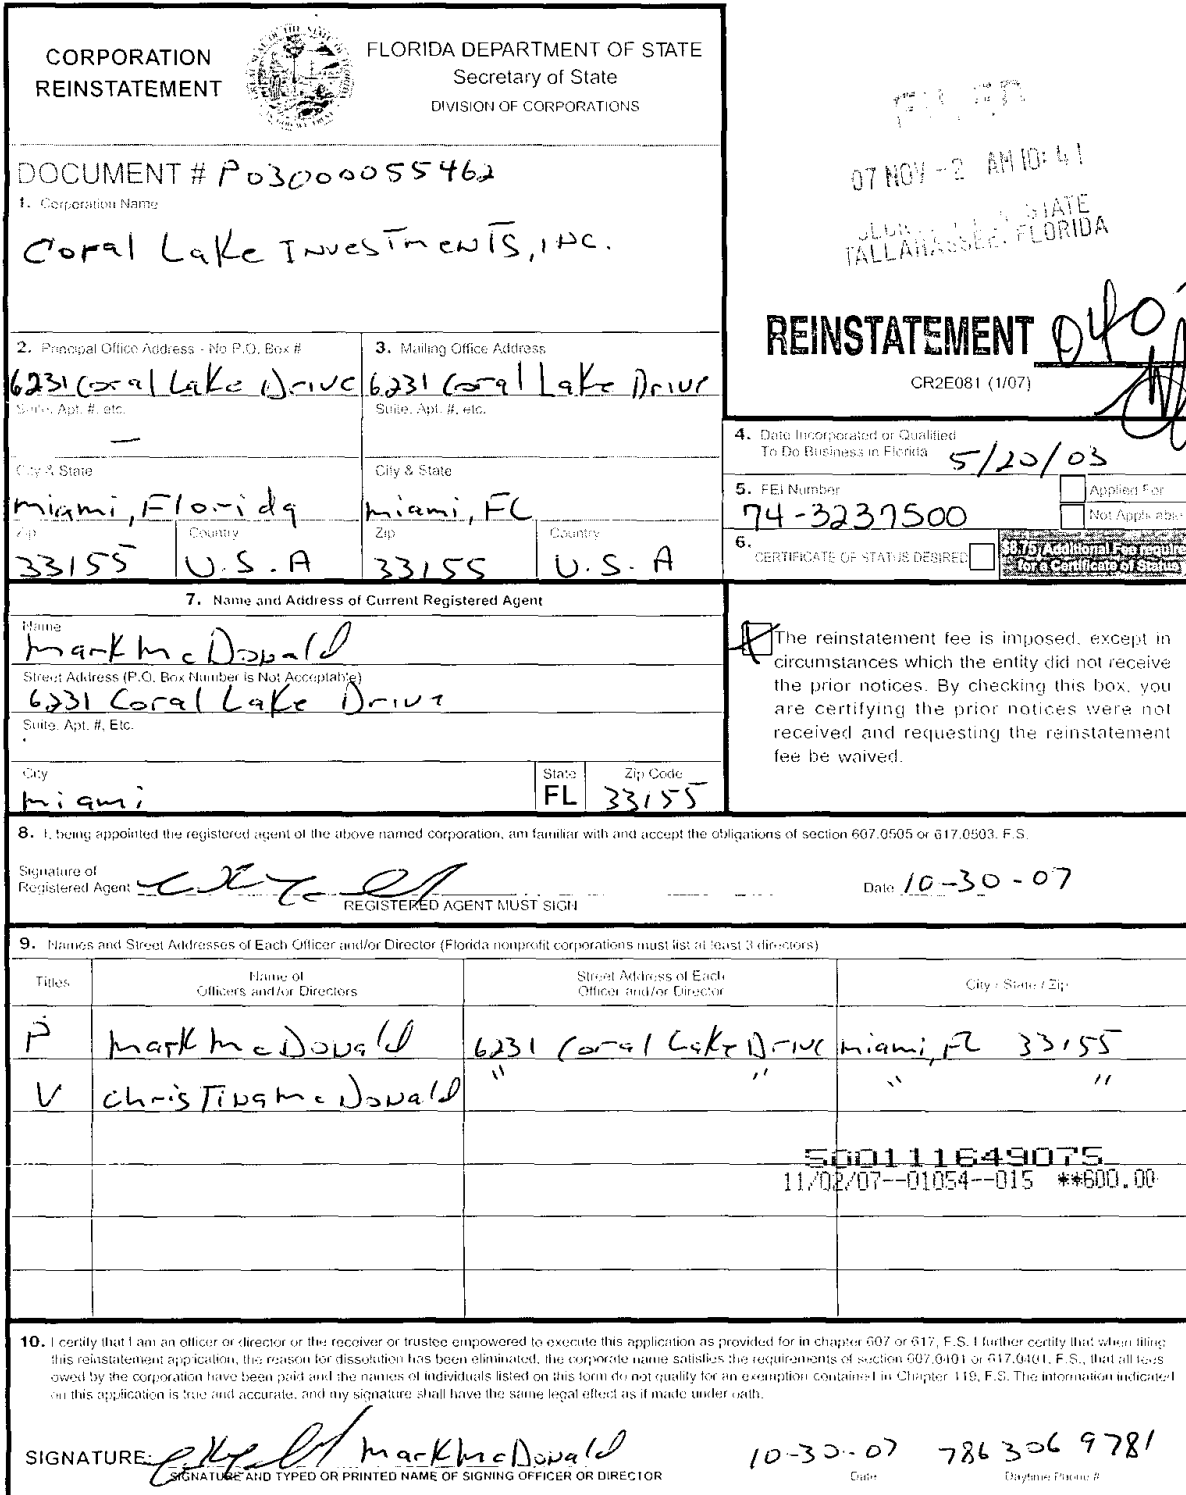 CORPORATION
REINSTATEMENT
FLORIDA DEPARTMENT OF STATE
Secretary of State
DIVISION OF CORPORATIONS
FILED
07 NOV -2 AM 10: 41
STATE
TALLAHASSEE, FLORIDA
DOCUMENT # P03000055462
1. Corporation Name
Coral Lake Investments, Inc.
REINSTATEMENT
CR2E081 (1/07)
2. Principal Office Address - No P.O. Box #
6231 Coral Lake Drive
Suite, Apt. #, etc.
—
City & State
Miami, Florida
Zip
33155
Country
U.S.A
3. Mailing Office Address
6231 Coral Lake Drive
Suite, Apt. #, etc.
City & State
Miami, FL
Zip
33155
Country
U.S.A
4. Date Incorporated or Qualified
To Do Business in Florida 5/20/03
5. FEI Number
74-3237500
Applied For
Not Applicable
6.
CERTIFICATE OF STATUS DESIRED
$8.75 Additional Fee require
for a Certificate of Status
7. Name and Address of Current Registered Agent
Name
Mark McDonald
Street Address (P.O. Box Number is Not Acceptable)
6231 Coral Lake Drive
Suite, Apt. #, Etc.
City
Miami
State
FL
Zip Code
33155
The reinstatement fee is imposed, except in
circumstances which the entity did not receive
the prior notices. By checking this box, you
are certifying the prior notices were not
received and requesting the reinstatement
fee be waived.
8. I, being appointed the registered agent of the above named corporation, am familiar with and accept the obligations of section 607.0505 or 617.0503, F.S.
Signature of
Registered Agent
REGISTERED AGENT MUST SIGN
Date 10-30-07
9. Names and Street Addresses of Each Officer and/or Director (Florida nonprofit corporations must list at least 3 directors)
Titles
Name of
Officers and/or Directors
Street Address of Each
Officer and/or Director
City / State / Zip
P Mark McDonald 6231 Coral Lake Drive Miami, FL 33155
V Christina McDonald " " " "
500111649075
11/02/07--01054--015 **600.00
10. I certify that I am an officer or director or the receiver or trustee empowered to execute this application as provided for in chapter 607 or 617, F.S. I further certify that when filing
this reinstatement application, the reason for dissolution has been eliminated, the corporate name satisfies the requirements of section 607.0401 or 617.0401, F.S., that all fees
owed by the corporation have been paid and the names of individuals listed on this form do not qualify for an exemption contained in Chapter 119, F.S. The information indicated
on this application is true and accurate, and my signature shall have the same legal effect as if made under oath.
SIGNATURE: Mark McDonald 10-30-07 786 306 9781
SIGNATURE AND TYPED OR PRINTED NAME OF SIGNING OFFICER OR DIRECTOR
Date
Daytime Phone #